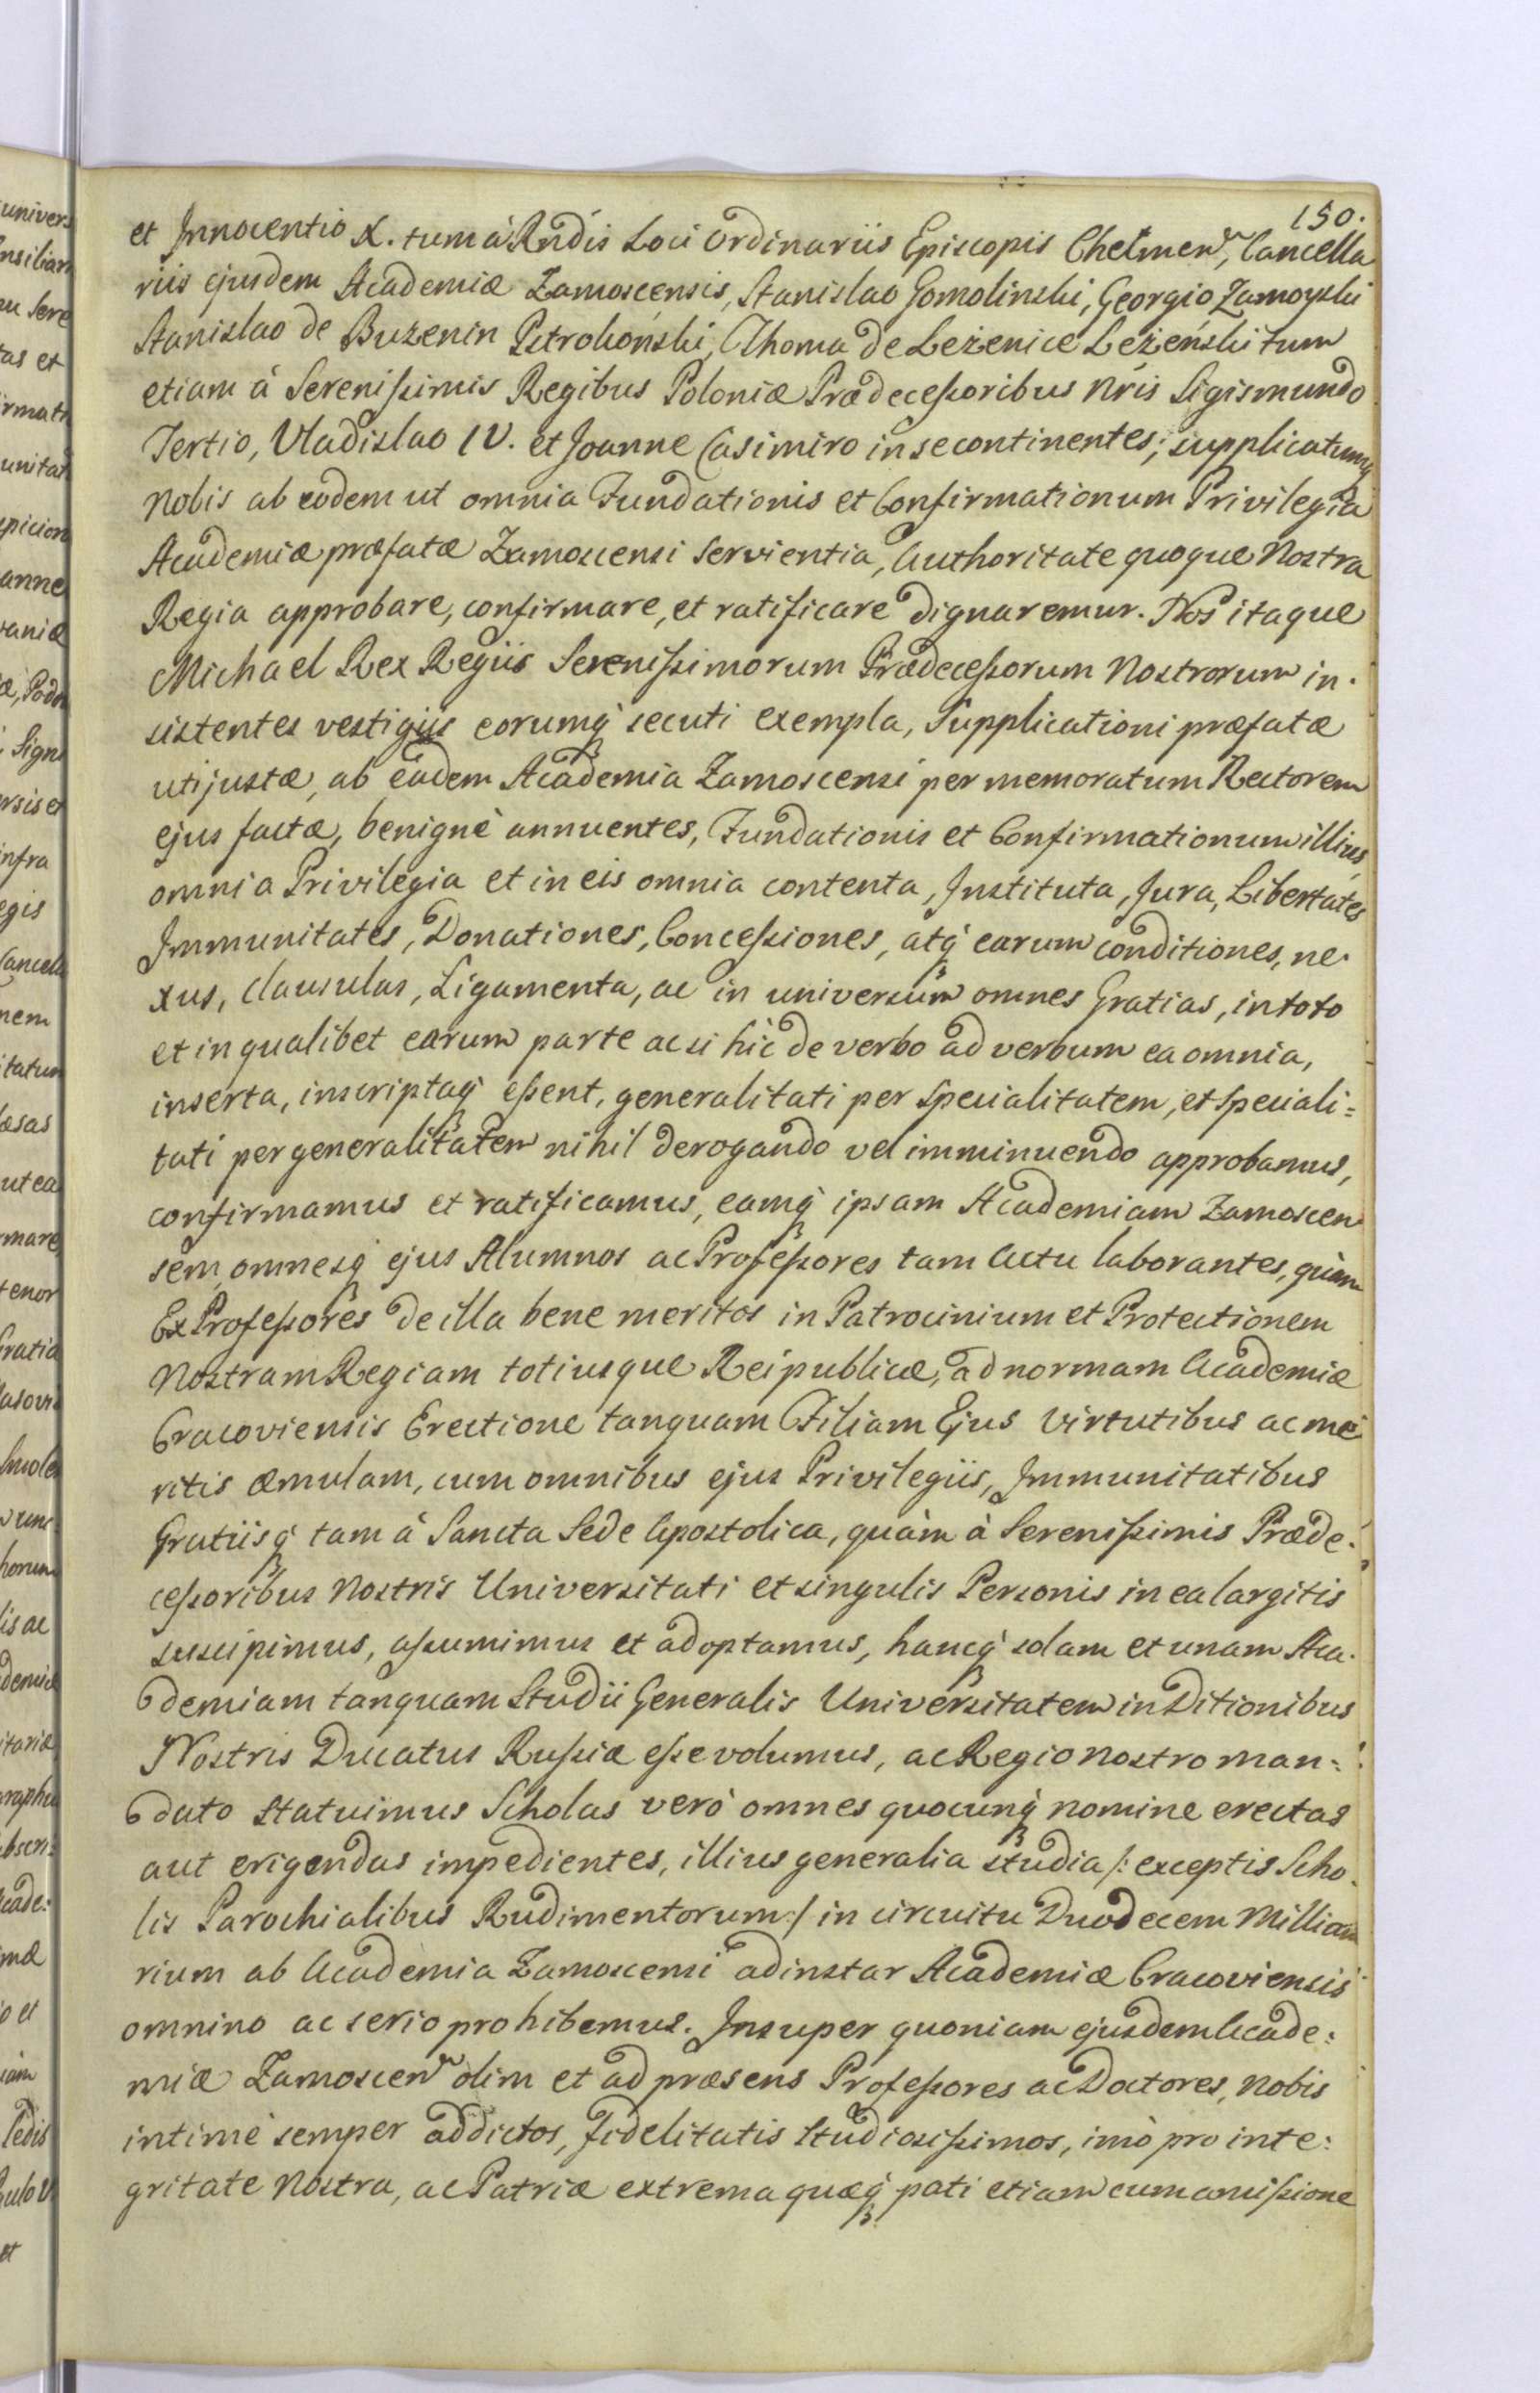 150.
et Innocentio X. tum à Rndis Loci Ordinariis Episcopis Chełmen, Cancella
riis ejusdem Academiæ Zamoscensis, Stanislao Gomolinski, Georgio Zamoyski
Stanislao de Buzenin Pstrokoński, Thoma de Leżenice Leżeński tum
etiam à Serenißimis Regibus Poloniæ Prædeceßoribus Nris Sigismundo
Tertio, Vladislao IV. et Joanne Casimiro in se continentes; supplicatumq
nobis ab eodem ut omnia Fundationis et Confirmationum Privilegia
Academiæ præfatæ Zamoscensi servientia, Authoritate quoque Nostra
Regia approbare, confirmare, et ratificare dignaremur. Nos itaque
Michael Rex Regiis Serenißimorum Prædeceßorum Nostrorum in.
sistentes vestigiis eorumq secuti exempla, Supplicationi præfatæ
uti justæ, ab eadem Academia Zamoscensi per memoratum Rectorem
ejus factæ, benignè annuentes, Fundationis et Confirmationum illius
omnia Privilegia et in eis omnia contenta, Instituta, Jura, Libertates
Immunitates, Donationes, Conceßiones, atq earum conditiones, ne.
xus, clausulas, Ligamenta, ac in universum omnes Gratias, in toto
et in qualibet earum parte ac si hìc de verbo ad verbum ea omnia,
inserta, inscriptaq eßent, generalitati per specialitatem, et speciali=
tati per generalitatem nihil derogando vel imminuendo approbamus,
confirmamus et ratificamus, eamq ipsam Academiam Zamoscen
sem, omnesq ejus Alumnos ac Profeßores tam Actu laborantes, quàm
Ex Profeßores de illa bene meritos in Patrocinium et Protectionem
Nostram Regiam totiusque Reipublicæ, ad normam Academiæ
Cracoviensis Erectione tanquam Filiam Ejus virtutibus ac me
ritis æmulam, cum omnibus ejus Privilegiis, Immunitatibus
Gratiisq tam à Sancta Sede Apostolica, quàm à Serenißimis Præde.
ceßoribus Nostris Universitati et singulis Personis in ea largitis
suscipimus, aßumimus et adoptamus, hancq solam et unam Aca.
demiam tanquam Studii Generalis Universitatem in Ditionibus
Nostris Ducatus Rußiæ eße volumus, ac Regio nostro man=
dato statuimus Scholas verò omnes quocunq nomine erectas
aut erigendas impedientes, illius generalia studia /: exceptis Scho.
lis Parochialibus Rudimentorum :/ in circuitu Duodecem Millia
rium ab Academia Zamoscensi ad instar Academiæ Cracoviensis
omnino ac serio prohibemus. Insuper quoniam ejusdem Acade:
miæ Zamoscen olim et ad præsens Profeßores ac Doctores, nobis
intimè semper addictos, fidelitatis studiosißimos, imò pro inte:
gritate Nostra, ac Patriæ extrema quæq pati etiam cum amißione